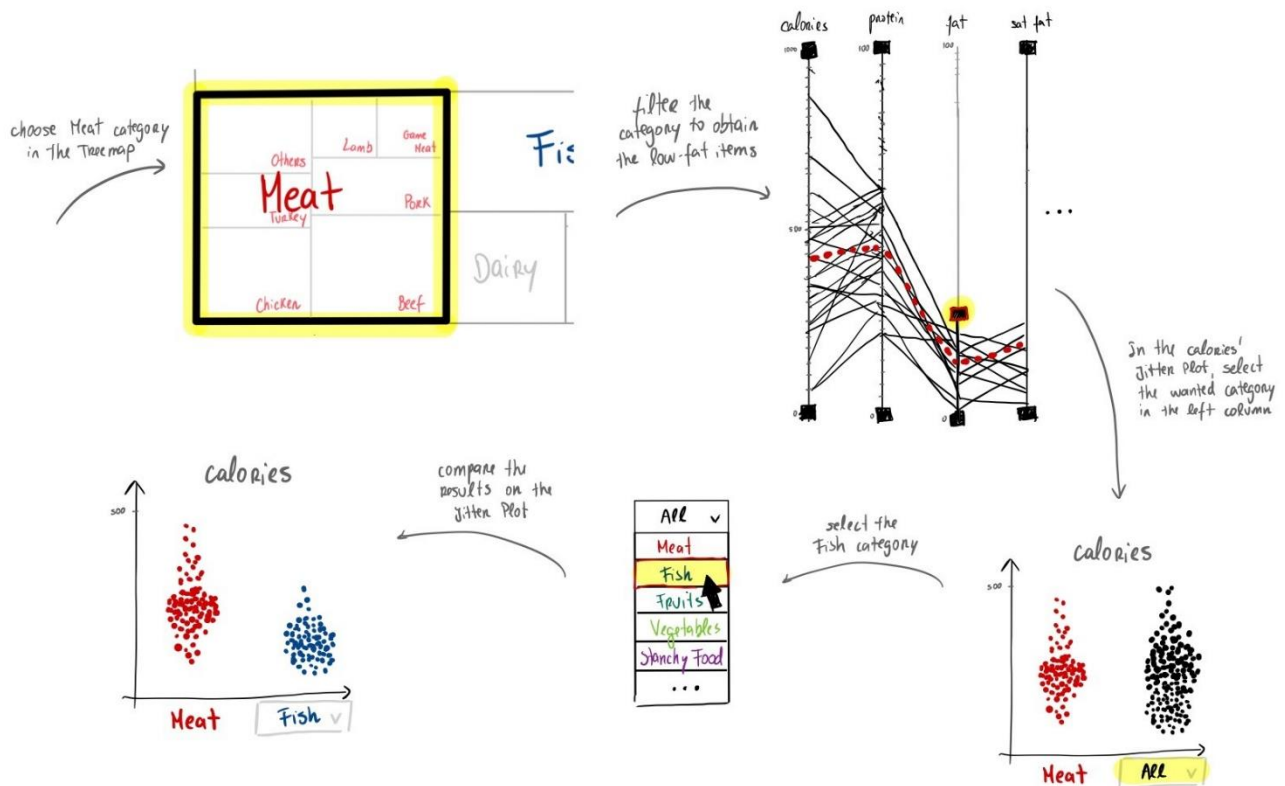 choose Meat category
in the Treemap
Others
Lamb
Game
Meat
Meat
Turkey
Pork
Chicken
Beef
Fis
Dairy
filter the
category to obtain
the low-fat items
calories
protein
fat
sat fat
1000
100
100
500
0
0
0
...
In the calories'
Jitter Plot, select
the wanted category
in the left column
calories
500
Meat
All
select the
Fish category
All
Meat
Fish
Fruits
Vegetables
Starchy Food
...
compare the
results on the
Jitter Plot
calories
500
Meat
Fish